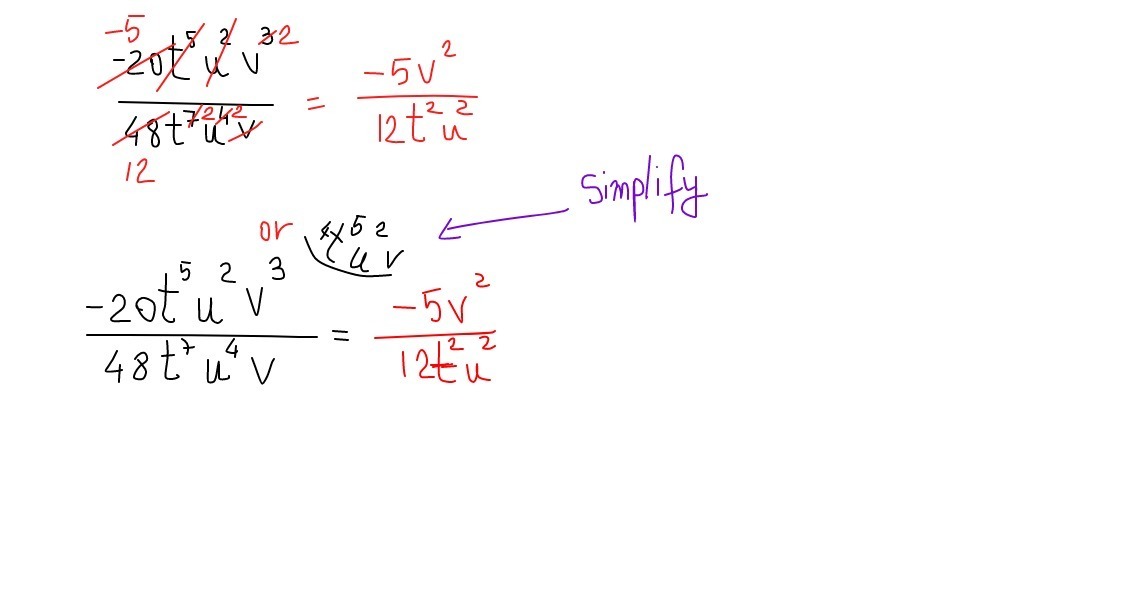 -5
-20t⁵u²v³ 2
48t⁷ 2 u⁴ 2 v
12
= -5v² / 12t²u²
Simplify
or 4 t⁵ u² v
-20t⁵u²v³ / 48t⁷u⁴v = -5v² / 12t²u²